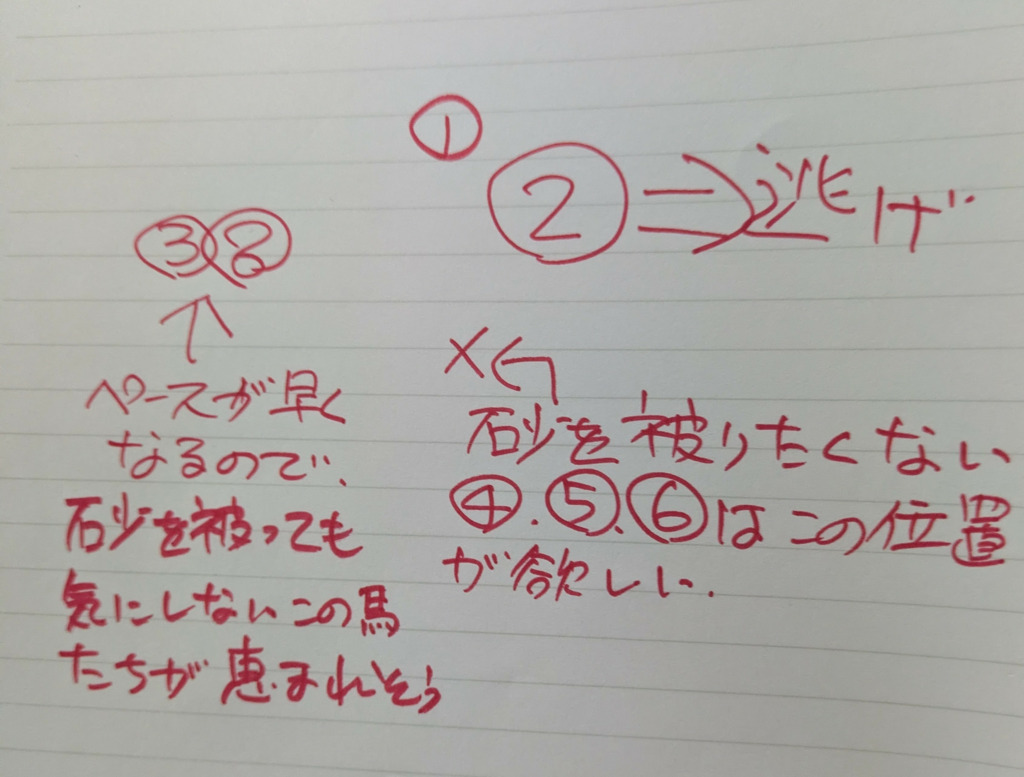 ①
②⇒逃げ
③⑧
↑
ペースが早く
なるので、
砂を被っても
気にしないこの馬
たちが恵まれそう
×
砂を被りたくない
④.⑤.⑥はこの位置
が欲しい.